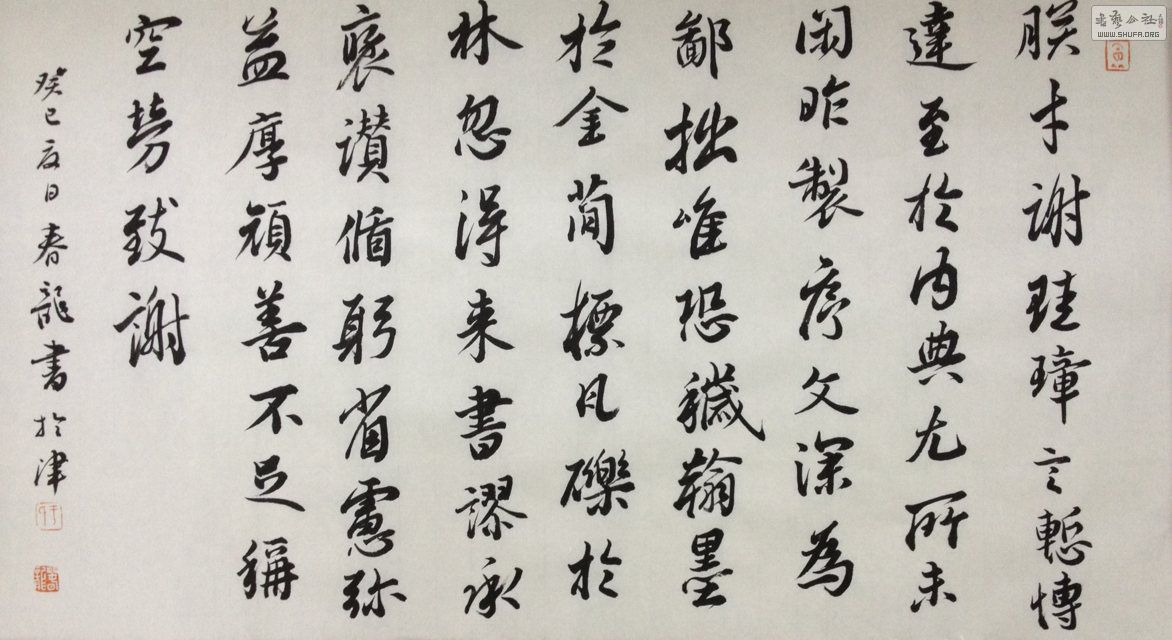 朕才謝珪璋言慙博
達至於内典尤所未
閑昨製序文深為
鄙拙唯恐穢翰墨
於金簡標瓦礫於
林忽得来書謬承
褒讃循躬省慮弥
益厚顔善不足稱
空勞致謝
癸巳夏日春龍書於津
書藝公社
WWW.SHUFA.ORG